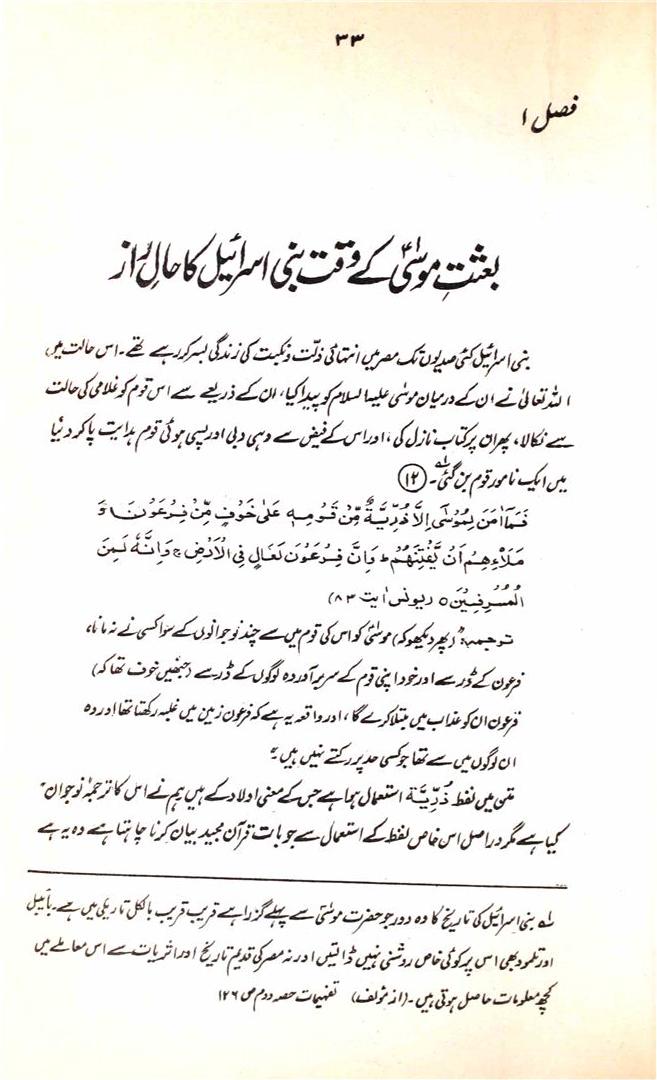 ۳۳
فصل ۱
بعثتِ موسیٰؑ کے وقت بنی اسرائیل کا حالِ زار
بنی اسرائیل کئی صدیوں تک مصر میں انتہائی ذلّت و نکبت کی زندگی بسر کر رہے تھے۔ اس حالت میں
اللہ تعالیٰ نے ان کے درمیان موسیٰ علیہ السلام کو پیدا کیا، ان کے ذریعے سے اس قوم کو غلامی کی حالت
سے نکالا، پھر ان پر کتاب نازل کی، اور اس کے فیض سے وہی دبی اور پسی ہوئی قوم ہدایت پا کر دنیا
میں ایک نامور قوم بن گئی۔ لہ (۱۲)
فَمَآ اٰمَنَ لِمُوْسٰٓی اِلَّا ذُرِّیَّةٌ مِّنْ قَوْمِهٖ عَلٰی خَوْفٍ مِّنْ فِرْعَوْنَ وَ
مَلَاْئِهِمْ اَنْ یَّفْتِنَهُمْ ط وَاِنَّ فِرْعَوْنَ لَعَالٍ فِی الْاَرْضِ ج وَاِنَّهٗ لَمِنَ
الْمُسْرِفِیْنَ ○ (یونس اٰیت ۸۳)
ترجمہ: "(پھر دیکھو کہ) موسیٰؑ کو اس کی قوم میں سے چند نوجوانوں کے سوا کسی نے نہ مانا،
فرعون کے ڈر سے اور خود اپنی قوم کے سربرآوردہ لوگوں کے ڈر سے (جنھیں خوف تھا کہ)
فرعون ان کو عذاب میں مبتلا کرے گا، اور واقعہ یہ ہے کہ فرعون زمین میں غلبہ رکھتا تھا اور وہ
ان لوگوں میں سے تھا جو کسی حد پر رکتے نہیں ہیں۔"
متن میں لفظ ذُرِّیَّة استعمال ہوا ہے جس کے معنی اولاد کے ہیں ہم نے اس کا ترجمہ "نوجوان"
کیا ہے مگر دراصل اس خاص لفظ کے استعمال سے جو بات قرآن مجید بیان کرنا چاہتا ہے وہ یہ ہے
لہ بنی اسرائیل کی تاریخ کا وہ دور جو حضرت موسیٰؑ سے پہلے گزرا ہے قریب قریب بالکل تاریکی میں ہے۔ بائیبل
اور تلمود بھی اس پر کوئی خاص روشنی نہیں ڈالتیں اور نہ مصر کی قدیم تاریخ اور اثریات سے اس معاملے میں
کچھ معلومات حاصل ہوتی ہیں۔ (از مؤلف) تفہیمات حصہ دوم ص ۱۲۶